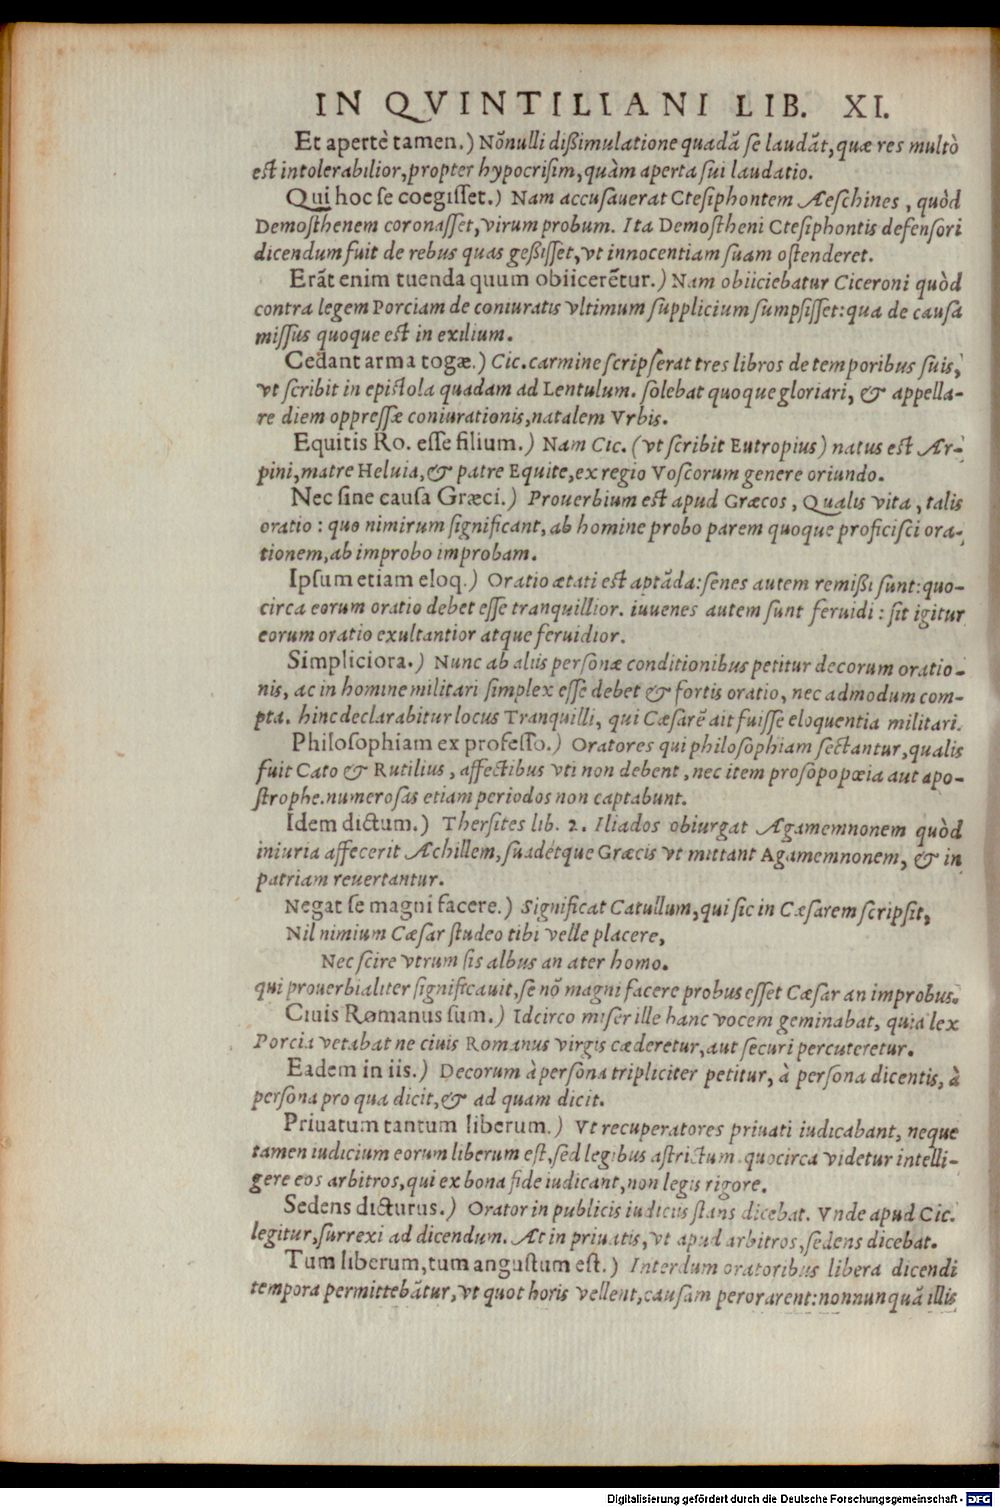 IN QVINTILIANI LIB. XI.
Et apertè tamen.) Nōnulli dißimulatione quadā se laudāt, quæ res multò
est intolerabilior, propter hypocrisim, quàm aperta sui laudatio.
Qui hoc se coegisset.) Nam accusauerat Ctesiphontem Aeschines, quòd
Demosthenem coronasset, virum probum. Ita Demostheni Ctesiphontis defensori
dicendum fuit de rebus quas geßisset, vt innocentiam suam ostenderet.
Erāt enim tuenda quum obiicerētur.) Nam obiiciebatur Ciceroni quòd
contra legem Porciam de coniuratis vltimum supplicium sumpsisset: qua de causa
missus quoque est in exilium.
Cedant arma togæ.) Cic. carmine scripserat tres libros de temporibus suis,
vt scribit in epistola quadam ad Lentulum. solebat quoque gloriari, & appella-
re diem oppressæ coniurationis, natalem Vrbis.
Equitis Ro. esse filium.) Nam Cic. (vt scribit Eutropius) natus est Ar-
pini, matre Heluia, & patre Equite, ex regio Voscorum genere oriundo.
Nec sine causa Græci.) Prouerbium est apud Græcos, Qualis vita, talis
oratio: quo nimirum significant, ab homine probo parem quoque proficisci ora-
tionem, ab improbo improbam.
Ipsum etiam eloq.) Oratio ætati est aptāda: senes autem remißi sunt: quo-
circa eorum oratio debet esse tranquillior. iuuenes autem sunt feruidi: sit igitur
eorum oratio exultantior atque feruidior.
Simpliciora.) Nunc ab aliis personæ conditionibus petitur decorum oratio-
nis, ac in homine militari simplex esse debet & fortis oratio, nec admodum com-
pta. hinc declarabitur locus Tranquilli, qui Cæsarē ait fuisse eloquentia militari.
Philosophiam ex professo.) Oratores qui philosophiam sectantur, qualis
fuit Cato & Rutilius, affectibus vti non debent, nec item prosopopœia aut apo-
strophe. numerosas etiam periodos non captabunt.
Idem dictum.) Thersites lib. 2. Iliados obiurgat Agamemnonem quòd
iniuria affecerit Achillem, suadétque Græcis vt mittant Agamemnonem, & in
patriam reuertantur.
Negat se magni facere.) Significat Catullum, qui sic in Cæsarem scripsit,
Nil nimium Cæsar studeo tibi velle placere,
Nec scire vtrum sis albus an ater homo.
qui prouerbialiter significauit, se nō magni facere probus esset Cæsar an improbus.
Ciuis Romanus sum.) Idcirco miser ille hanc vocem geminabat, quia lex
Porcia vetabat ne ciuis Romanus virgis cæderetur, aut securi percuteretur.
Eadem in iis.) Decorum à persona tripliciter petitur, à persona dicentis, à
persona pro qua dicit, & ad quam dicit.
Priuatum tantum liberum.) Vt recuperatores priuati iudicabant, neque
tamen iudicium eorum liberum est, sed legibus astrictum. quocirca videtur intelli-
gere eos arbitros, qui ex bona fide iudicant, non legis rigore.
Sedens dicturus.) Orator in publicis iudiciis stans dicebat. Vnde apud Cic.
legitur, surrexi ad dicendum. At in priuatis, vt apud arbitros, sedens dicebat.
Tum liberum, tum angustum est.) Interdum oratoribus libera dicendi
tempora permittebātur, vt quot horis vellent, causam perorarent: nonnunquā illis
Digitalisierung gefördert durch die Deutsche Forschungsgemeinschaft - DFG